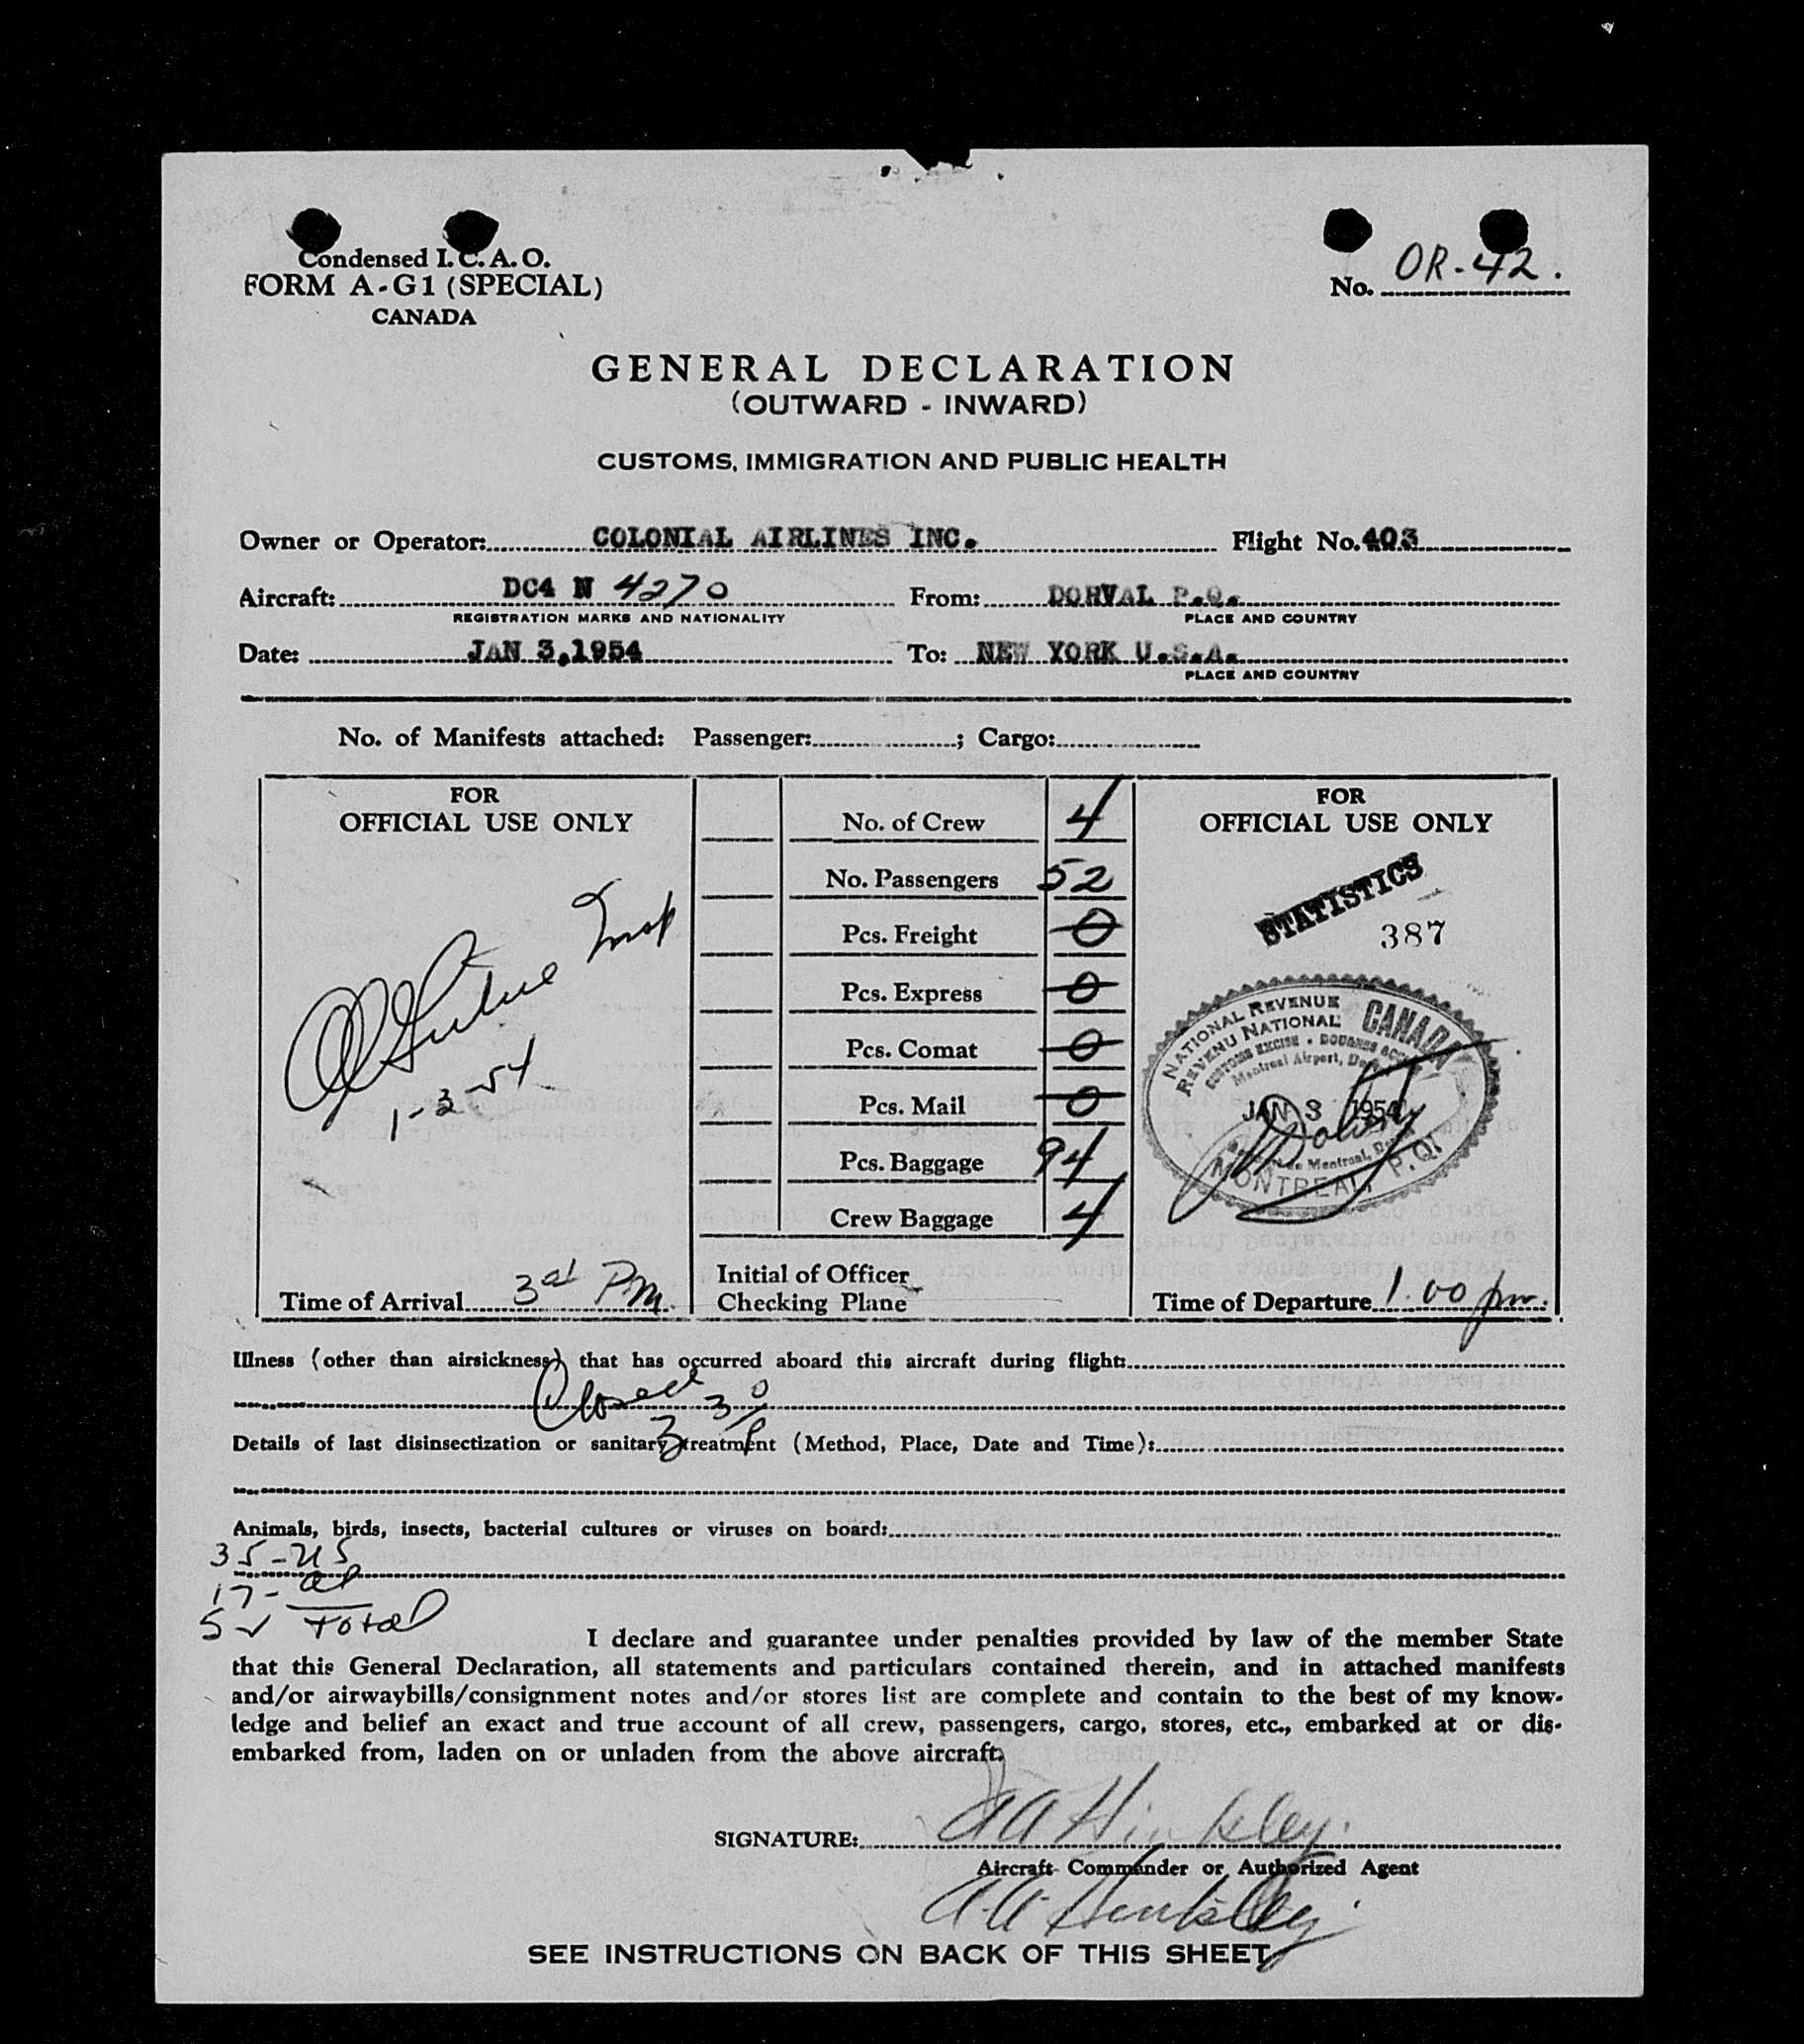 Condensed I.C.A.O.
FORM A-G1 (SPECIAL)
CANADA
No. OR-42.
GENERAL DECLARATION
(OUTWARD - INWARD)
CUSTOMS, IMMIGRATION AND PUBLIC HEALTH
Owner or Operator: COLONIAL AIRLINES INC. Flight No. 403
Aircraft: DC4 N 4270 From: DORVAL P.Q.
REGISTRATION MARKS AND NATIONALITY PLACE AND COUNTRY
Date: JAN 3,1954 To: NEW YORK U.S.A.
PLACE AND COUNTRY
No. of Manifests attached: Passenger: ; Cargo:
FOR
OFFICIAL USE ONLY
Insp
1-3-54
Time of Arrival PM
No. of Crew 4
No. Passengers 52
Pcs. Freight 0
Pcs. Express 0
Pcs. Comat 0
Pcs. Mail 0
Pcs. Baggage 94
Crew Baggage 4
Initial of Officer
Checking Plane
FOR
OFFICIAL USE ONLY
STATISTICS
387
NATIONAL REVENUE CANADA
REVENU NATIONAL
CUSTOMS EXCISE • DOUANES
Montreal Airport,
JAN 3 1954
Montreal,
MONTREAL, P.Q.
Time of Departure 1.00 pm.
Illness (other than airsickness) that has occurred aboard this aircraft during flight:
Closed
Details of last disinsectization or sanitary treatment (Method, Place, Date and Time):
Animals, birds, insects, bacterial cultures or viruses on board:
35-US
17- al
52 Total
I declare and guarantee under penalties provided by law of the member State
that this General Declaration, all statements and particulars contained therein, and in attached manifests
and/or airwaybills/consignment notes and/or stores list are complete and contain to the best of my know-
ledge and belief an exact and true account of all crew, passengers, cargo, stores, etc., embarked at or dis-
embarked from, laden on or unladen from the above aircraft.
SIGNATURE: A A Hinkley.
Aircraft Commander or Authorized Agent
A. A. Hinkley.
SEE INSTRUCTIONS ON BACK OF THIS SHEET